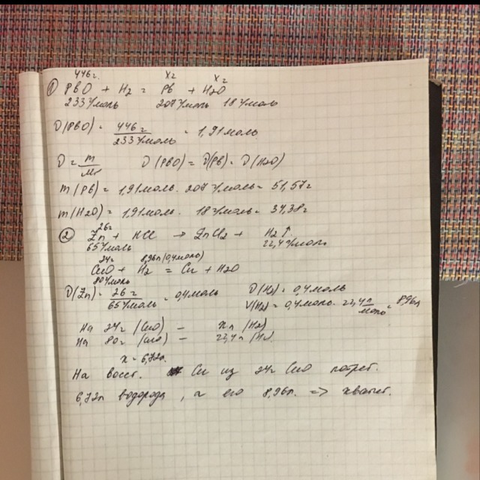 446г. xг xг
① PbO + H2 = Pb + H2O
233г/моль 207г/моль 18г/моль
υ(PbO) = 446г / 233г/моль = 1,91моль
υ = m/Mr υ(PbO) = υ(Pb) = υ(H2O)
m(Pb) = 1,91моль · 207г/моль = 51,57г
m(H2O) = 1,91моль · 18г/моль = 34,38г
26г
② Zn + HCl → ZnCl2 + H2↑
65г/моль 22,4г/моль
24г 8,96л (0,4моль)
CuO + H2 = Cu + H2O
80г/моль
υ(Zn) = 26г / 65г/моль = 0,4моль υ(H2) = 0,4моль
V(H2) = 0,4моль · 22,4л/моль = 8,96л
На 24г (CuO) — xл (H2)
На 80г (CuO) — 22,4л (H2)
x = 6,72л.
На восст. Cu из 24г CuO потреб.
6,72л водорода, а его 8,96л. => хватит.